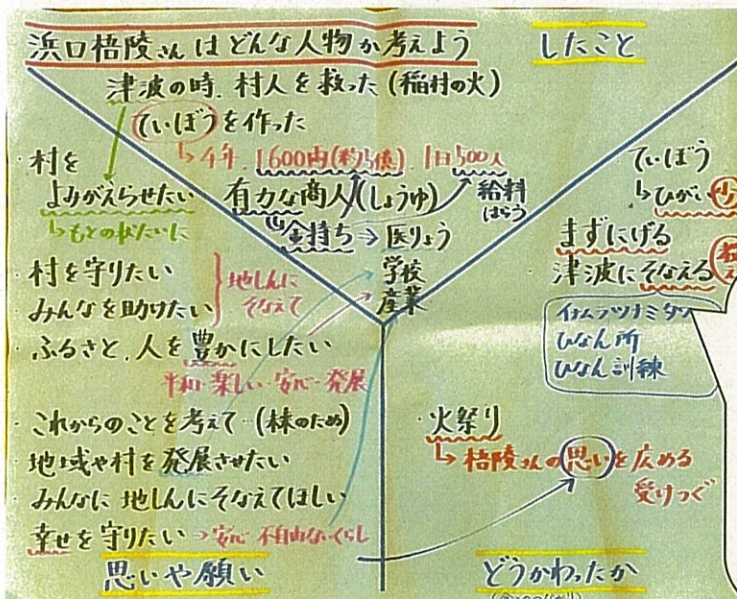 浜口梧陵さんはどんな人物か考えよう
したこと
津波の時、村人を救った(稲村の火)
ていぼうを作った
↳4年 1600両(約5億) 1日500人
給料はらう
有力な商人(しょうゆ)
金持ち⇒医りょう
学校
産業
・村を
よみがえらせたい
↳もとの状たいに
・村を守りたい
・みんなを助けたい
地しんにそなえて
・ふるさと、人を豊かにしたい
平和・楽しい・安心・発展
・これからのことを考えて
・地域や村を発展させたい
・みんなに地しんにそなえてほしい
・幸せを守りたい→安心
思いや願い
ていぼう
↳ひがい少
・まずにげる
津波にそなえる
ひなん所
ひなん訓練
・火祭り
↳梧陵さんの思いを広める
受けつぐ
どうかわったか